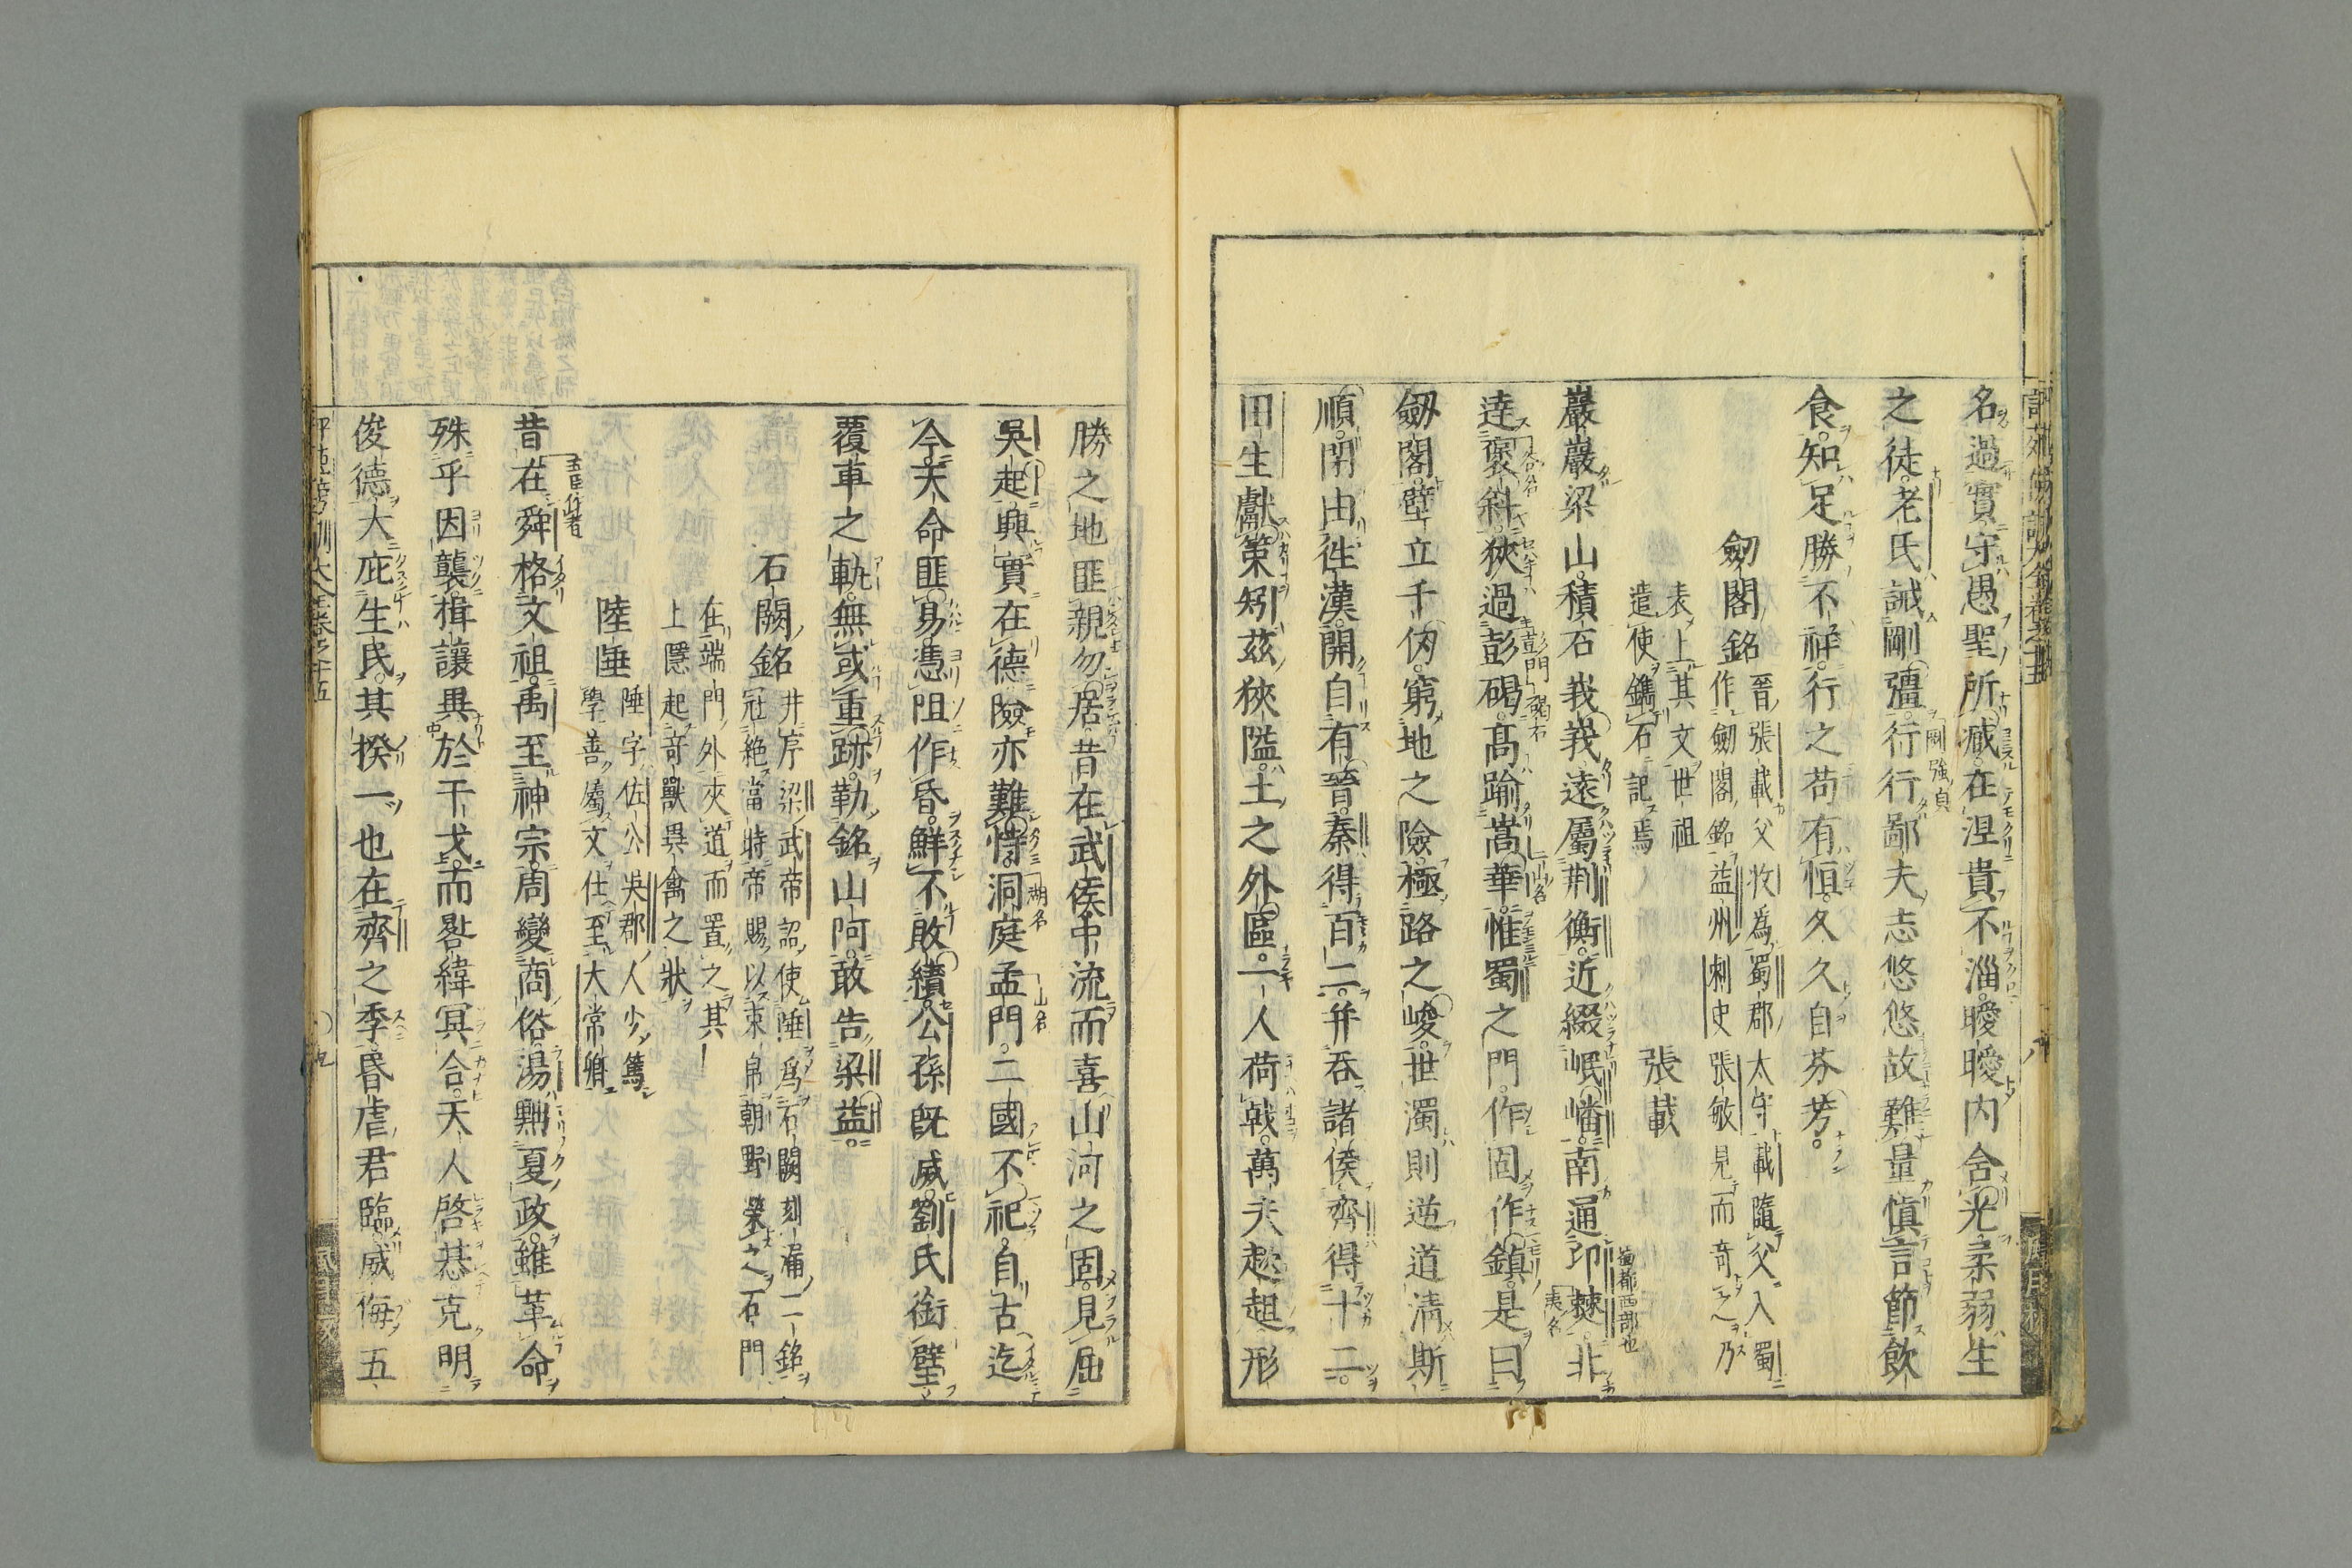 名過實守愚聖所臧在涅貴不淄曖曖内含光柔弱生
之徒老氏誡剛彊行行鄙夫志悠悠故難量慎言節飲
食知足勝不祥行之苟有恒久久自芬芳
劔閣銘
晉張載父牧爲蜀郡太守載隨父入蜀
作劔閣銘益州刺史張敏見而奇之乃
表上其文世祖
遣使鐫石記焉
張載
巖巖梁山積石峩峩遠屬荆衡近綴岷嶓南通卭僰北
達褒斜狹過彭碣髙踰嵩華惟蜀之門作固作鎮是曰
劔閣壁立千仭窮地之險極路之峻世濁則逆道清斯
順閉由往漢開自有晉秦得百二并吞諸侯齊得十二
田生獻策矧茲狹隘土之外區一人荷戟萬夫趑趄形
勝之地匪親勿居昔在武侯中流而喜山河之固見屈
吳起興實在德險亦難恃洞庭孟門二國不祀自古迄
今天命匪易憑阻作昏鮮不敗績公孫旣滅劉氏銜璧
覆車之軌無或重跡勒銘山阿敢告梁益
石闕銘
并序梁武帝詔使陸爲石闕刻漏二銘
冠絶當時帝賜以束帛朝野榮之石門
在端門外夾道而置之其
上隱起奇獸異禽之狀
陸倕
陲字佐公吳郡人少篤
學善屬文仕至大常卿
昔在舜格文祖禹至神宗周變商俗湯黜夏政雖革命
殊乎因襲揖讓異於干戈而晷緯冥合天人啓惎克明
俊德大庇生民其揆一也在齊之季昏虐君臨威侮五